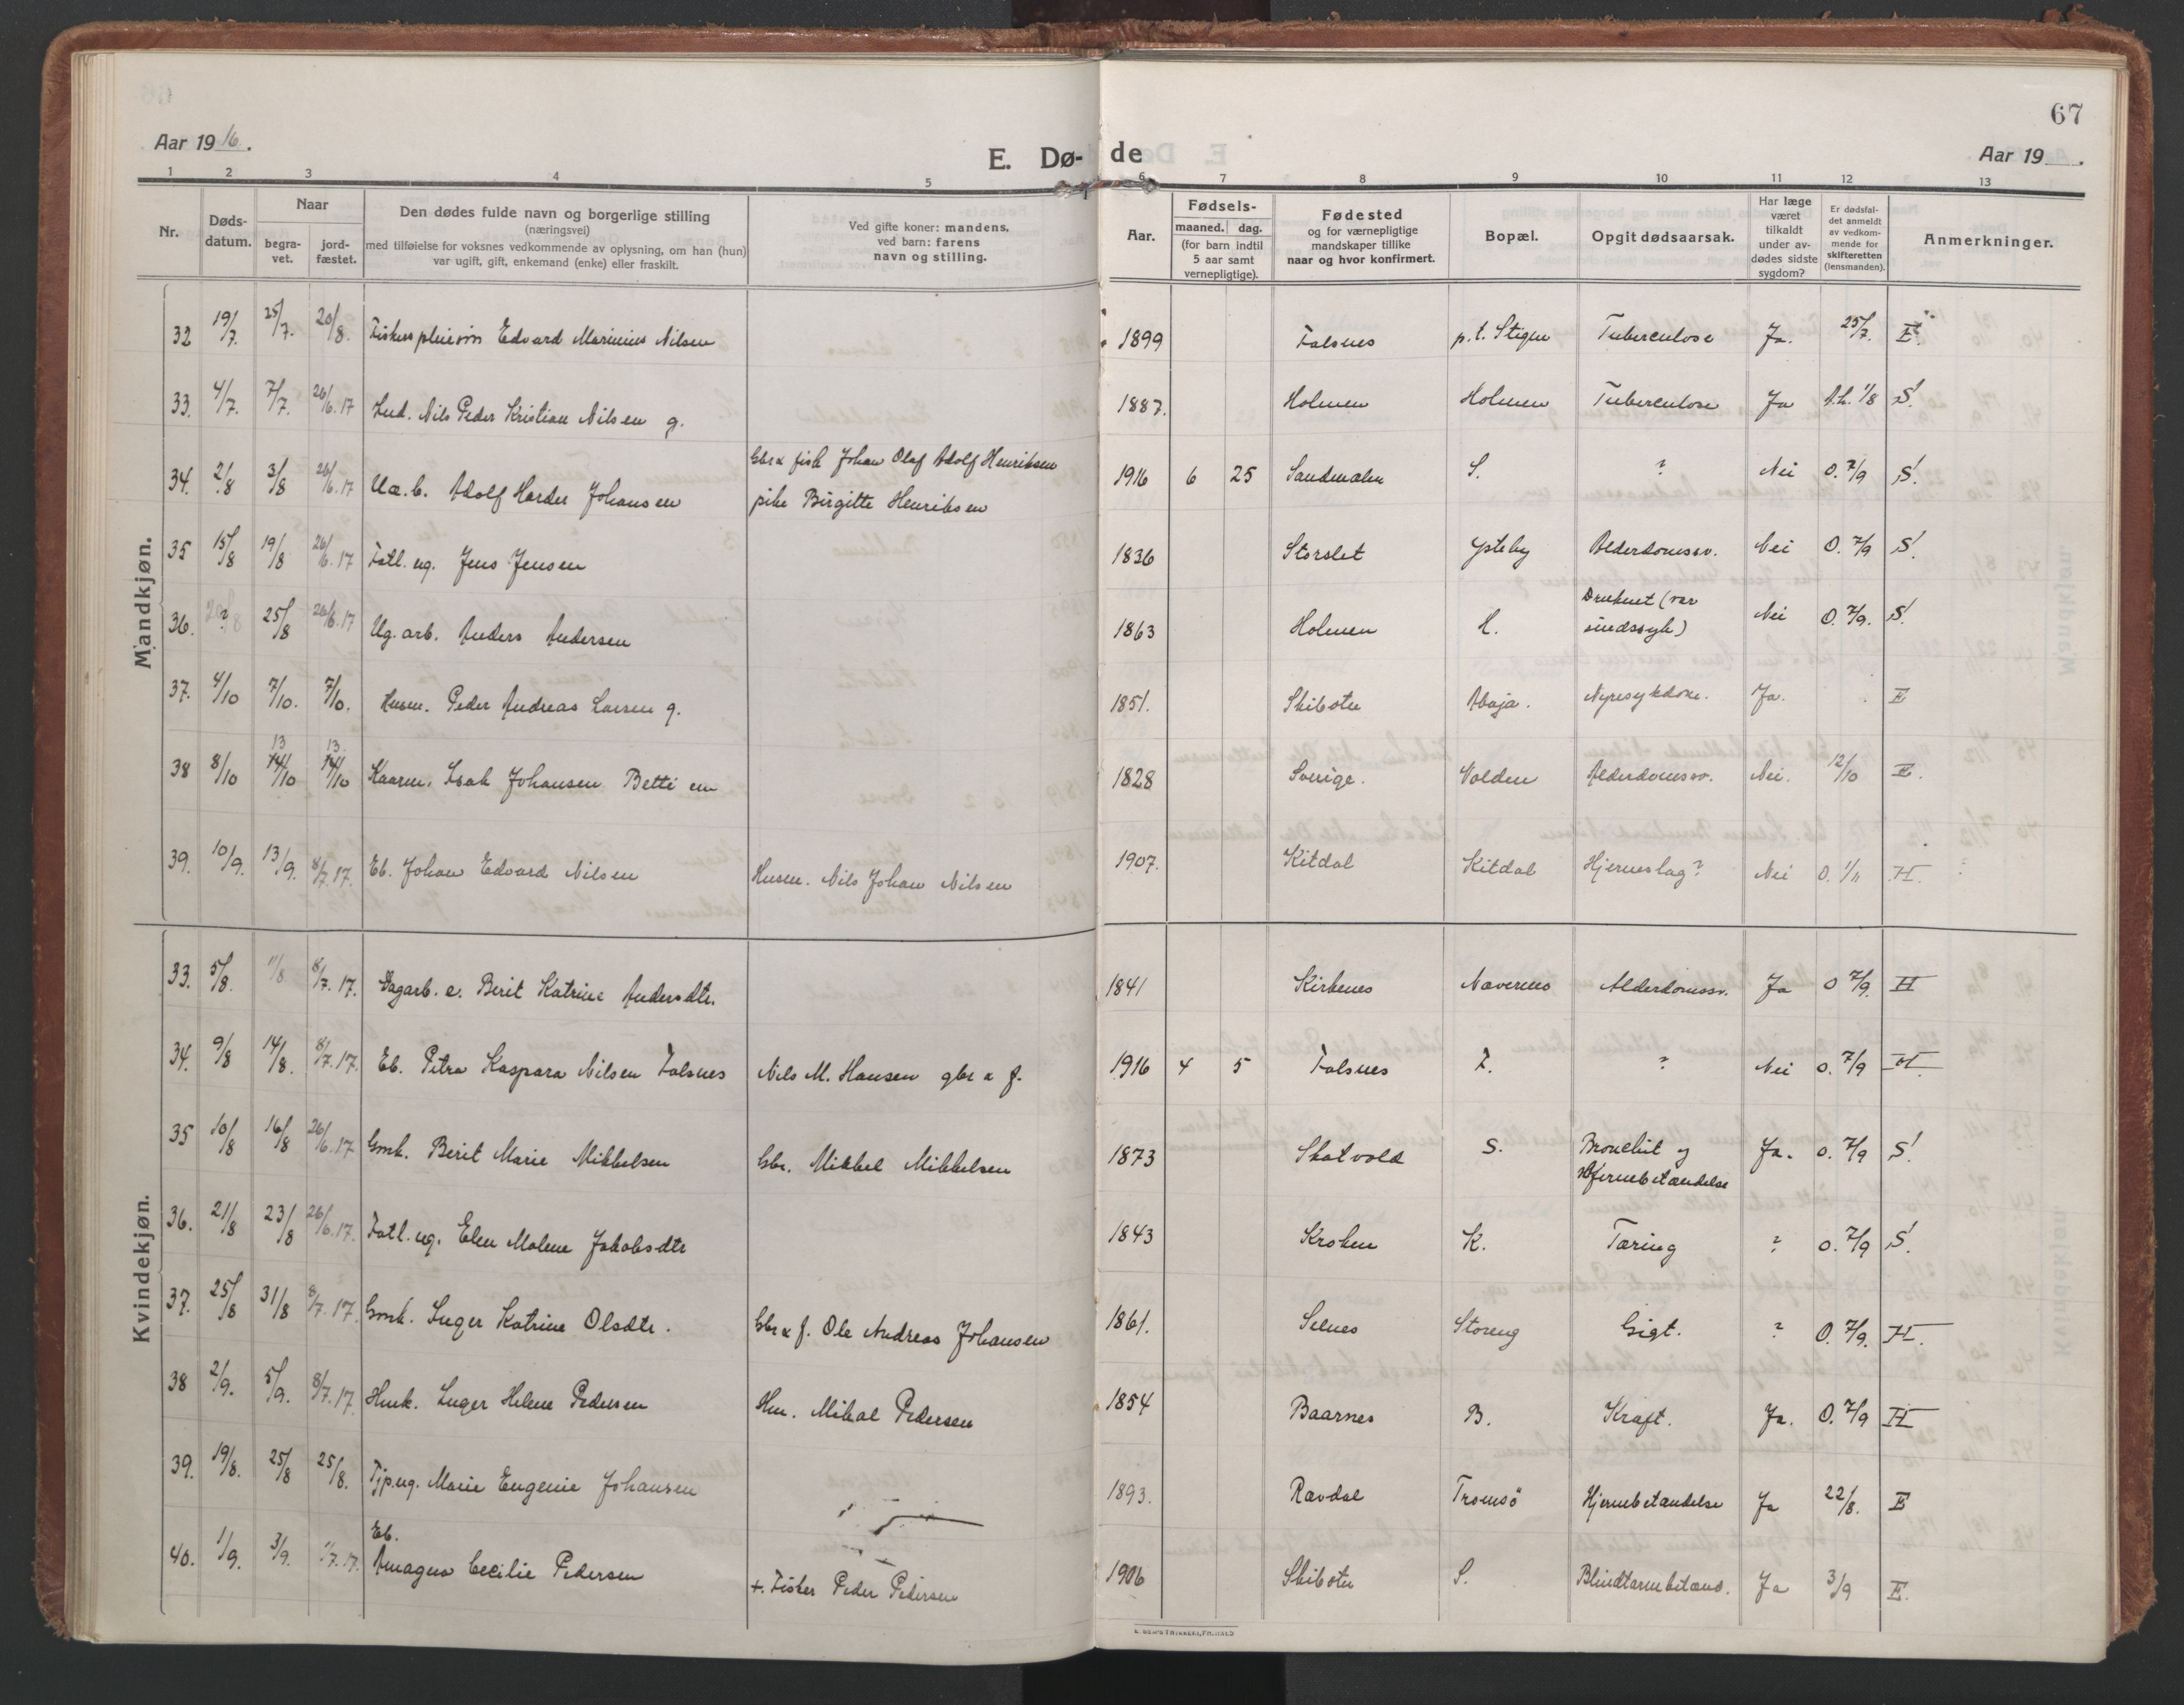 67
Aar 1916.
E. Dø- de
Aar 19 .
1 2 3 4 5 6 7 8 9 10 11 12 13
Nr.
Døds-
datum.
Naar
begra-
vet.
jord-
fæstet.
Den dødes fulde navn og borgerlige stilling
(næringsvei)
med tilføielse for voksnes vedkommende av oplysning, om han (hun)
var ugift, gift, enkemand (enke) eller fraskilt.
Ved gifte koner: mandens,
ved barn: farens
navn og stilling.
Aar.
Fødsels-
maaned. dag.
(for barn indtil
5 aar samt
vernepligtige).
Fødested
og for værnepligtige
mandskaper tillike
naar og hvor konfirmert.
Bopæl.
Opgit dødsaarsak.
Har læge
været
tilkaldt
under av-
dødes sidste
sygdom?
Er dødsfal-
det anmeldt
av vedkom-
mende for
skifteretten
(lensmanden).
Anmerkninger.
Mandkjøn.
32 19/7. 25/7. 20/8. Edvard Marinius Nilsen 1899 Falsnes p.t. Tuberculose Ja. 25/7. E.
33. 4/7. 7/7. 26/6.17 Nils Peder Kristian Nilsen g. 1887. Holmen Holmen Tuberculose Ja 1/8 S.
Gbr & fisk Johan Olaf Adolf Henriksen
34. 2/8 3/8 26/6.17 Ua. b. Adolf Harder Johansen pike Birgitte Henriksen 1916 6 25 Sandmælen S. ? Nei 0. 7/9 S.
35 15/8 19/8 26/6.17 Fatl. ug. Jens Jensen 1836 Storslet Ysteby Alderdomssv. Nei 0. 7/9 S.
36. ? 25/8 26/6.17 Ug. arb. Anders Andersen 1863 Holmen H. Druknet (var
sindssyk) Nei 0. 7/9. S.
37. 4/10 7/10. 7/10. Husm. Peder Andreas Larsen g. 1851. Skibotn Abaja. Nyresykdom. Ja. E
13 13.
38 8/10 14/10 14/10 Kaarm. Isak Johansen Betti em 1828 Sverige. Volden Alderdomssv. Nei. 12/10 E.
39. 10/9. 13/9. 8/7.17. Eb. Johan Edvard Nilsen Husm. Nils Johan Nilsen 1907. Kitdal Kitdal Hjerneslag? Nei 0. 1/11 H.
Kvindekjøn.
33. 5/8. 11/8 8/7.17. Dagarb. e. Berit Katrine Andersdtr. 1841 Kirkenes Navernes Alderdomssv. Ja 0 7/9. H
34. 9/8 14/8. 8/7.17. Eb. Petra Kaspara Nilsen Falsnes Nils M. Hansen gbr & f. 1916 4 5 Falsnes F. ? Nei 0. 7/9 H.
35 10/8 16/8 26/6.17 Gmk. Berit Marie Mikkelsen Gbr. Mikkel Mikkelsen 1873 Skatvold S. Bronchit og
Hjernebetændelse Ja. 0. 7/9 S.
36. 21/8 23/8 26/6.17. Fatl. ug. Elen Malene Jakobsdtr 1843 Kroken K. Tæring ? 0. 7/9 S.
37. 25/8 31/8 8/7.17. Gmk. Inger Katrine Olsdtr. Gbr & f. Ole Andreas Johansen 1861. Selnes Storeng Gigt. ? 0. 7/9. H.
38 2/9. 5/9. 8/7.17. Hmk. Inger Helene Pedersen Hm. Mikal Pedersen 1854 Baarnes B. Kræft. Ja. 0. 7/9 H
39. 19/8. 25/8 25/8. Tjp.ug. Marie Eugenie Johansen 1893. Ravdal Tromsö Hjernebetændelse Ja 22/8. E
Eb.
40. 1/9. 3/9. 1/7.17. Amagna Cecilie Pedersen +. Fisker Peder Pedersen 1906 Skibotn S. Blindtarmbetænd. Ja 3/9 E.